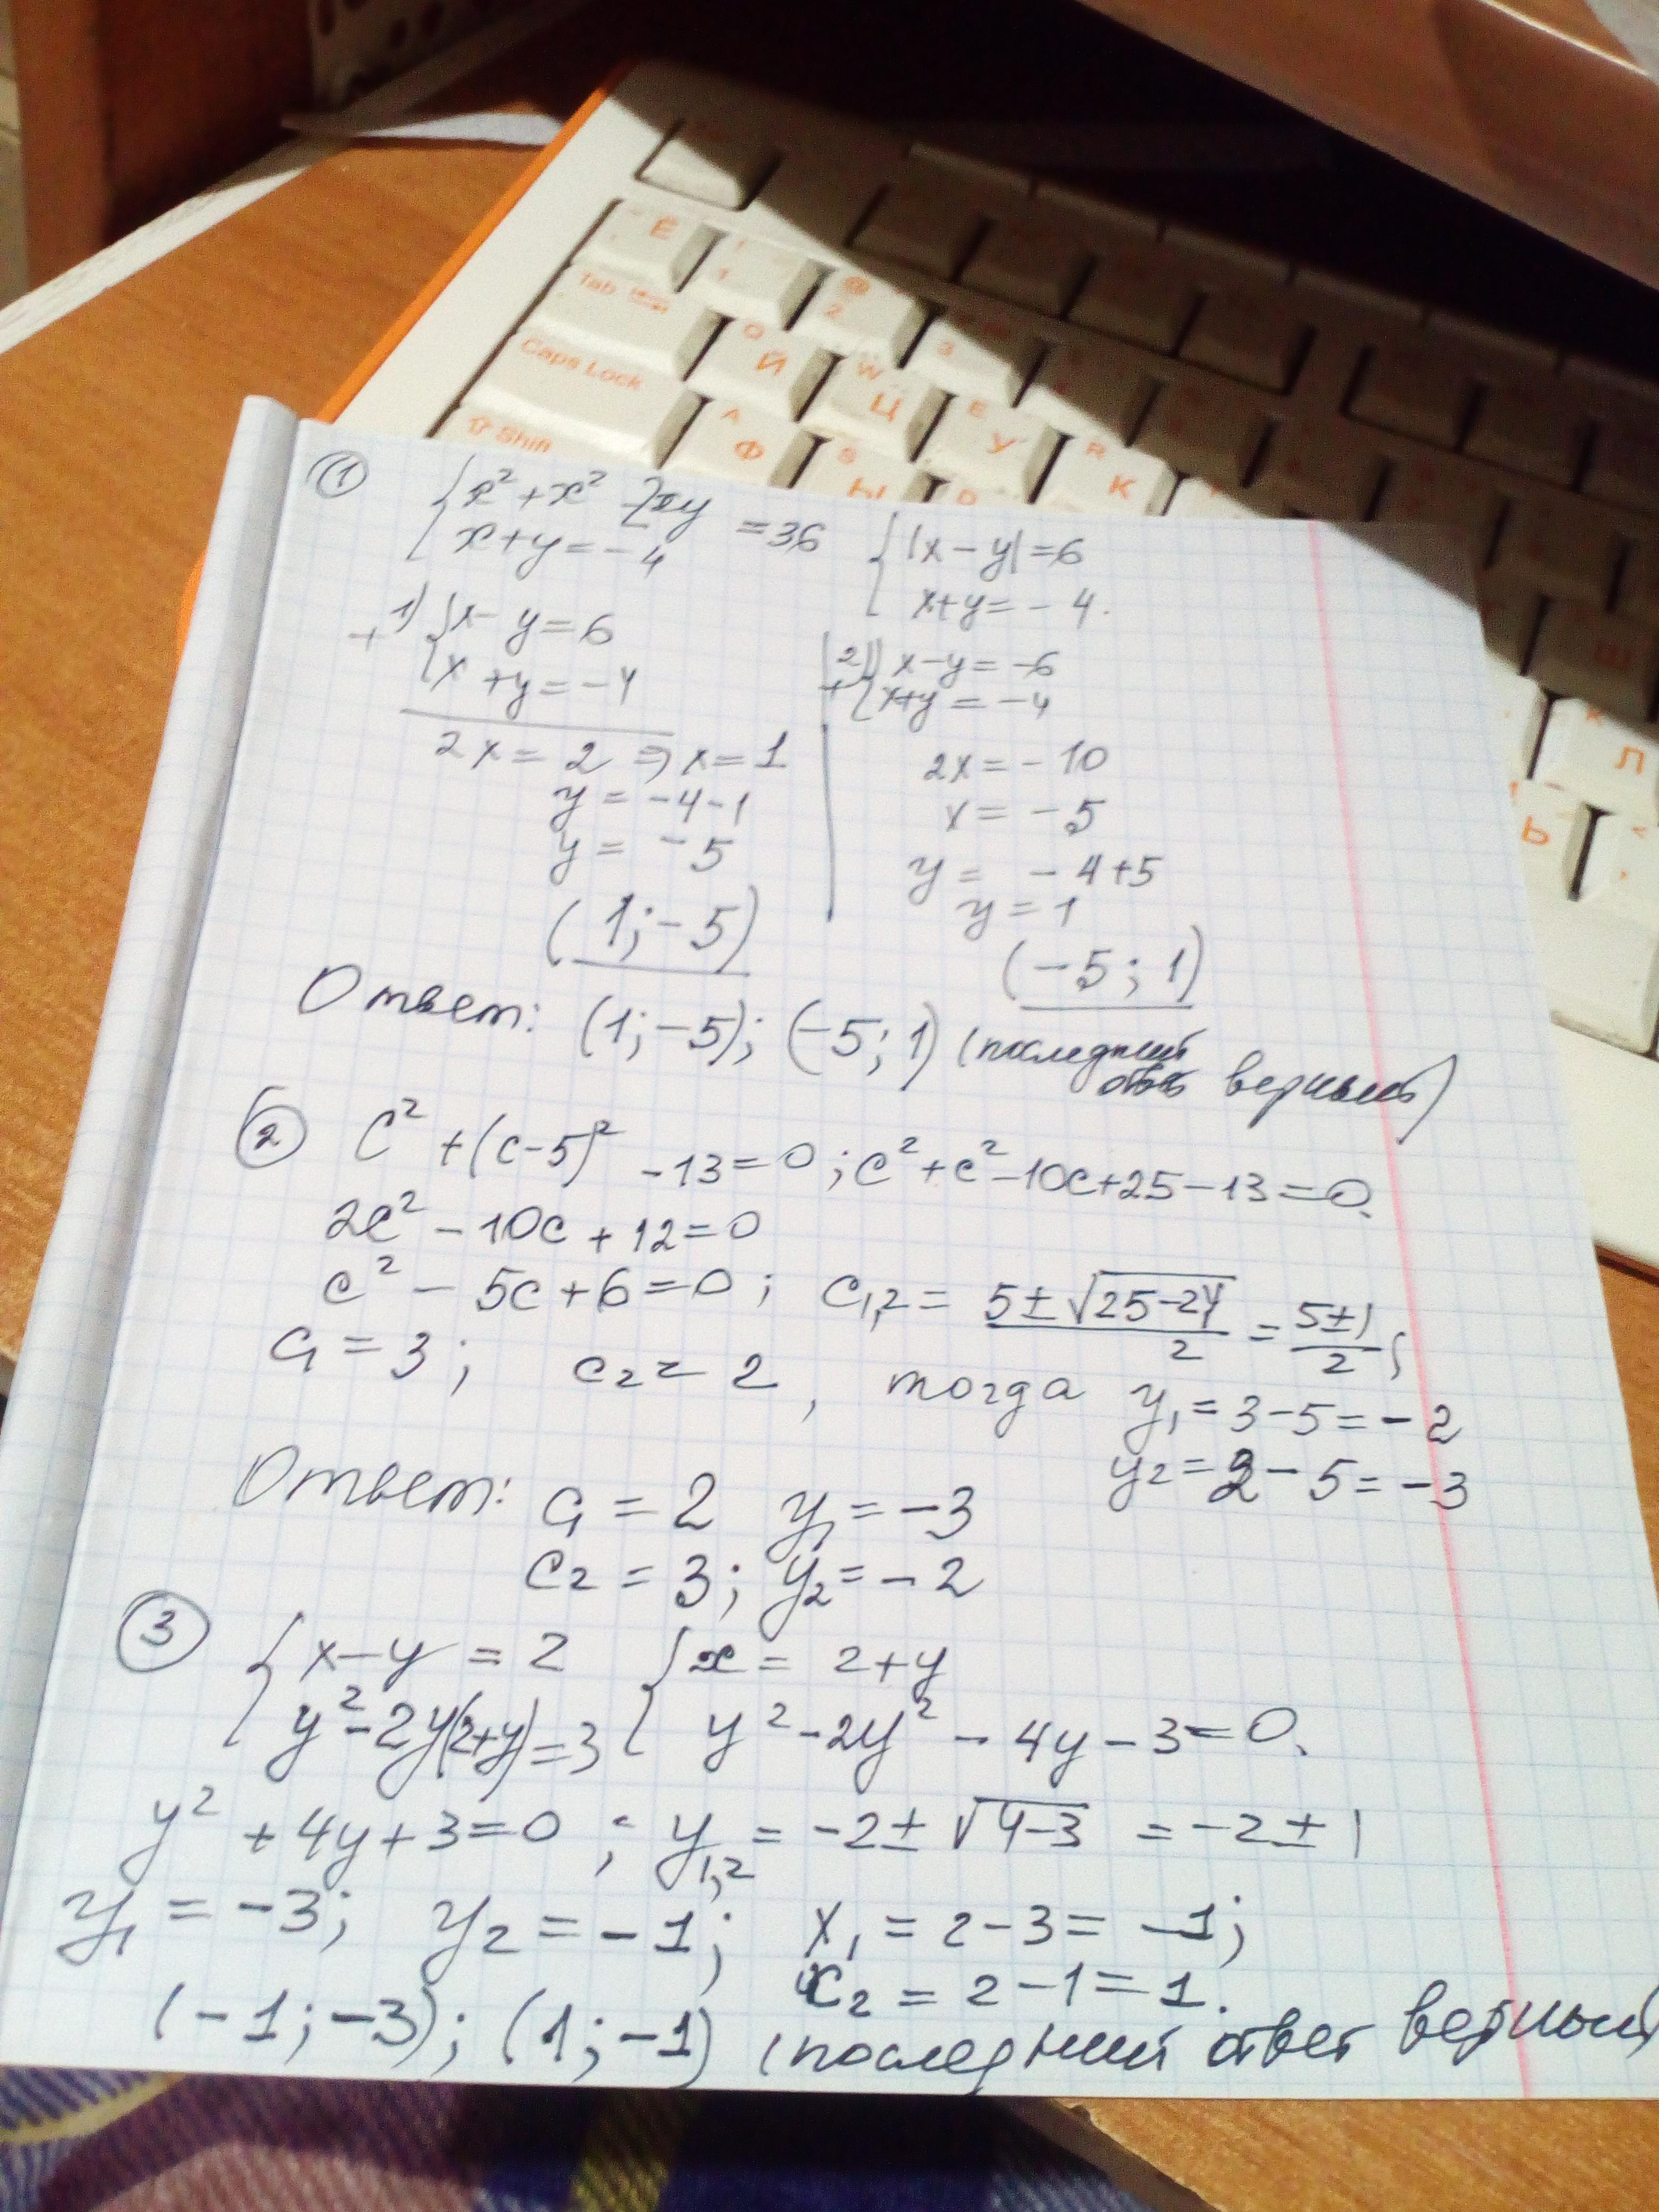 Ё
! 1
@ 2
3
Tab
Q Й
W Ц
E У
R К
Caps Lock
A Ф
S Ы
D
⇧ Shift
Ш
Л
Ь
① { x² + x² - 2xy = 36
x + y = -4
{ |x - y| = 6
x + y = -4.
+ 1) { x - y = 6
x + y = -4
2x = 2 ⇒ x = 1
y = -4 - 1
y = -5
(1; -5)
+ 2) { x - y = -6
x + y = -4
2x = -10
x = -5
y = -4 + 5
y = 1
(-5; 1)
Ответ: (1; -5); (-5; 1) (последний ответ верный)
② C² + (c - 5)² - 13 = 0; c² + c² - 10c + 25 - 13 = 0.
2c² - 10c + 12 = 0
c² - 5c + 6 = 0; c₁,₂ = (5 ± √(25 - 24))/2 = (5 ± 1)/2;
c₁ = 3; c₂ = 2, тогда y₁ = 3 - 5 = -2
y₂ = 2 - 5 = -3
Ответ: c₁ = 2 y₁ = -3
c₂ = 3; y₂ = -2
③ { x - y = 2
y² - 2y(2 + y) = 3
{ x = 2 + y
y² - 2y² - 4y - 3 = 0.
y² + 4y + 3 = 0; y₁,₂ = -2 ± √(4 - 3) = -2 ± 1
y₁ = -3; y₂ = -1; x₁ = 2 - 3 = -1;
x₂ = 2 - 1 = 1.
(-1; -3); (1; -1) (последний ответ верный